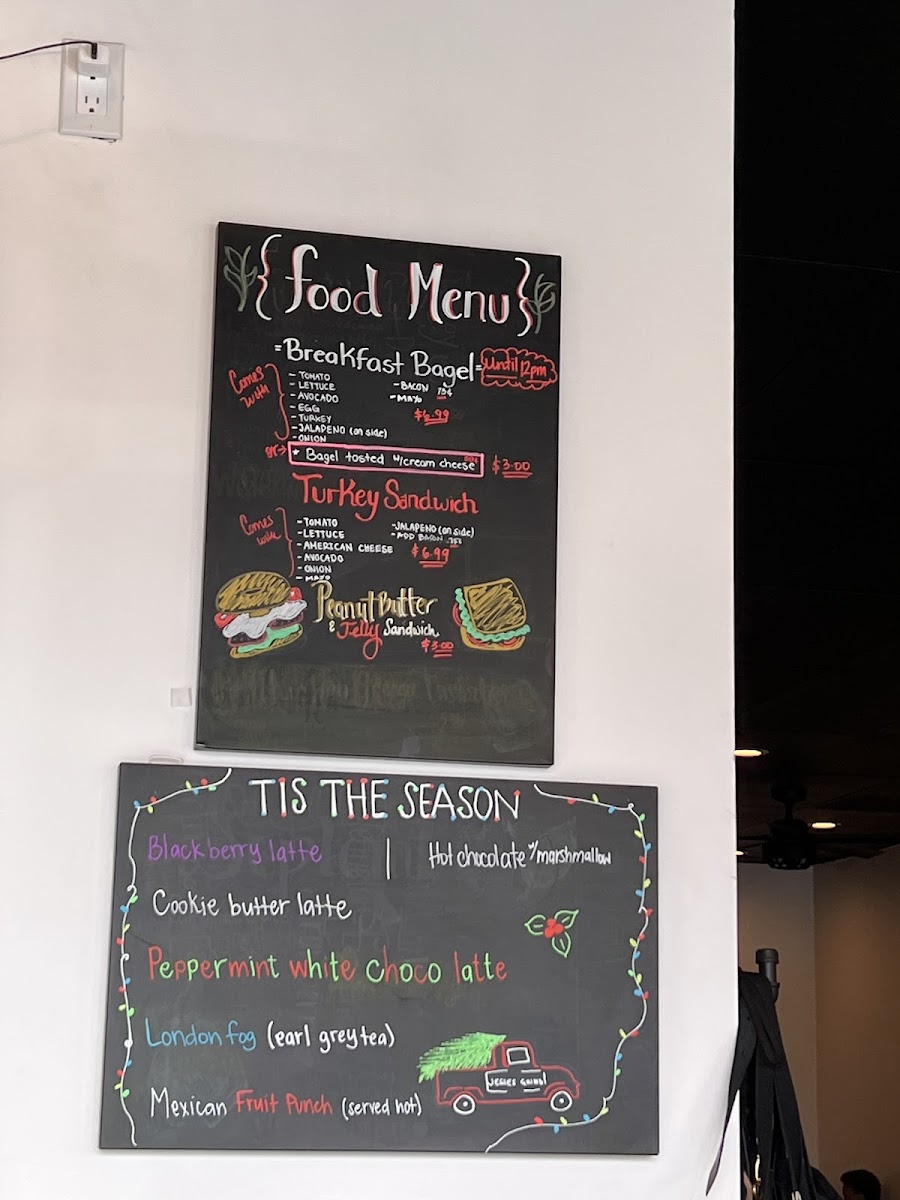 {food Menu}
=Breakfast Bagel=
Until 12pm
Comes with
- TOMATO
- LETTUCE
- AVOCADO
- EGG
- TURKEY
- JALAPENO (on side)
- ONION
- BACON 75¢
- MAYO
$6.99
or→
* Bagel tosted w/cream cheese
$3.00
Turkey Sandwich
Comes with
- TOMATO
- LETTUCE
- AMERICAN CHEESE
- AVOCADO
- ONION
- MAYO
- JALAPENO (on side)
- ADD BACON .75¢
$6.99
Peanut Butter
& Jelly Sandwich
$3.00
TIS THE SEASON
Blackberry latte | Hot chocolate w/marshmallow
Cookie butter latte
Peppermint white choco latte
London fog (earl grey tea)
Mexican Fruit Punch (served hot)